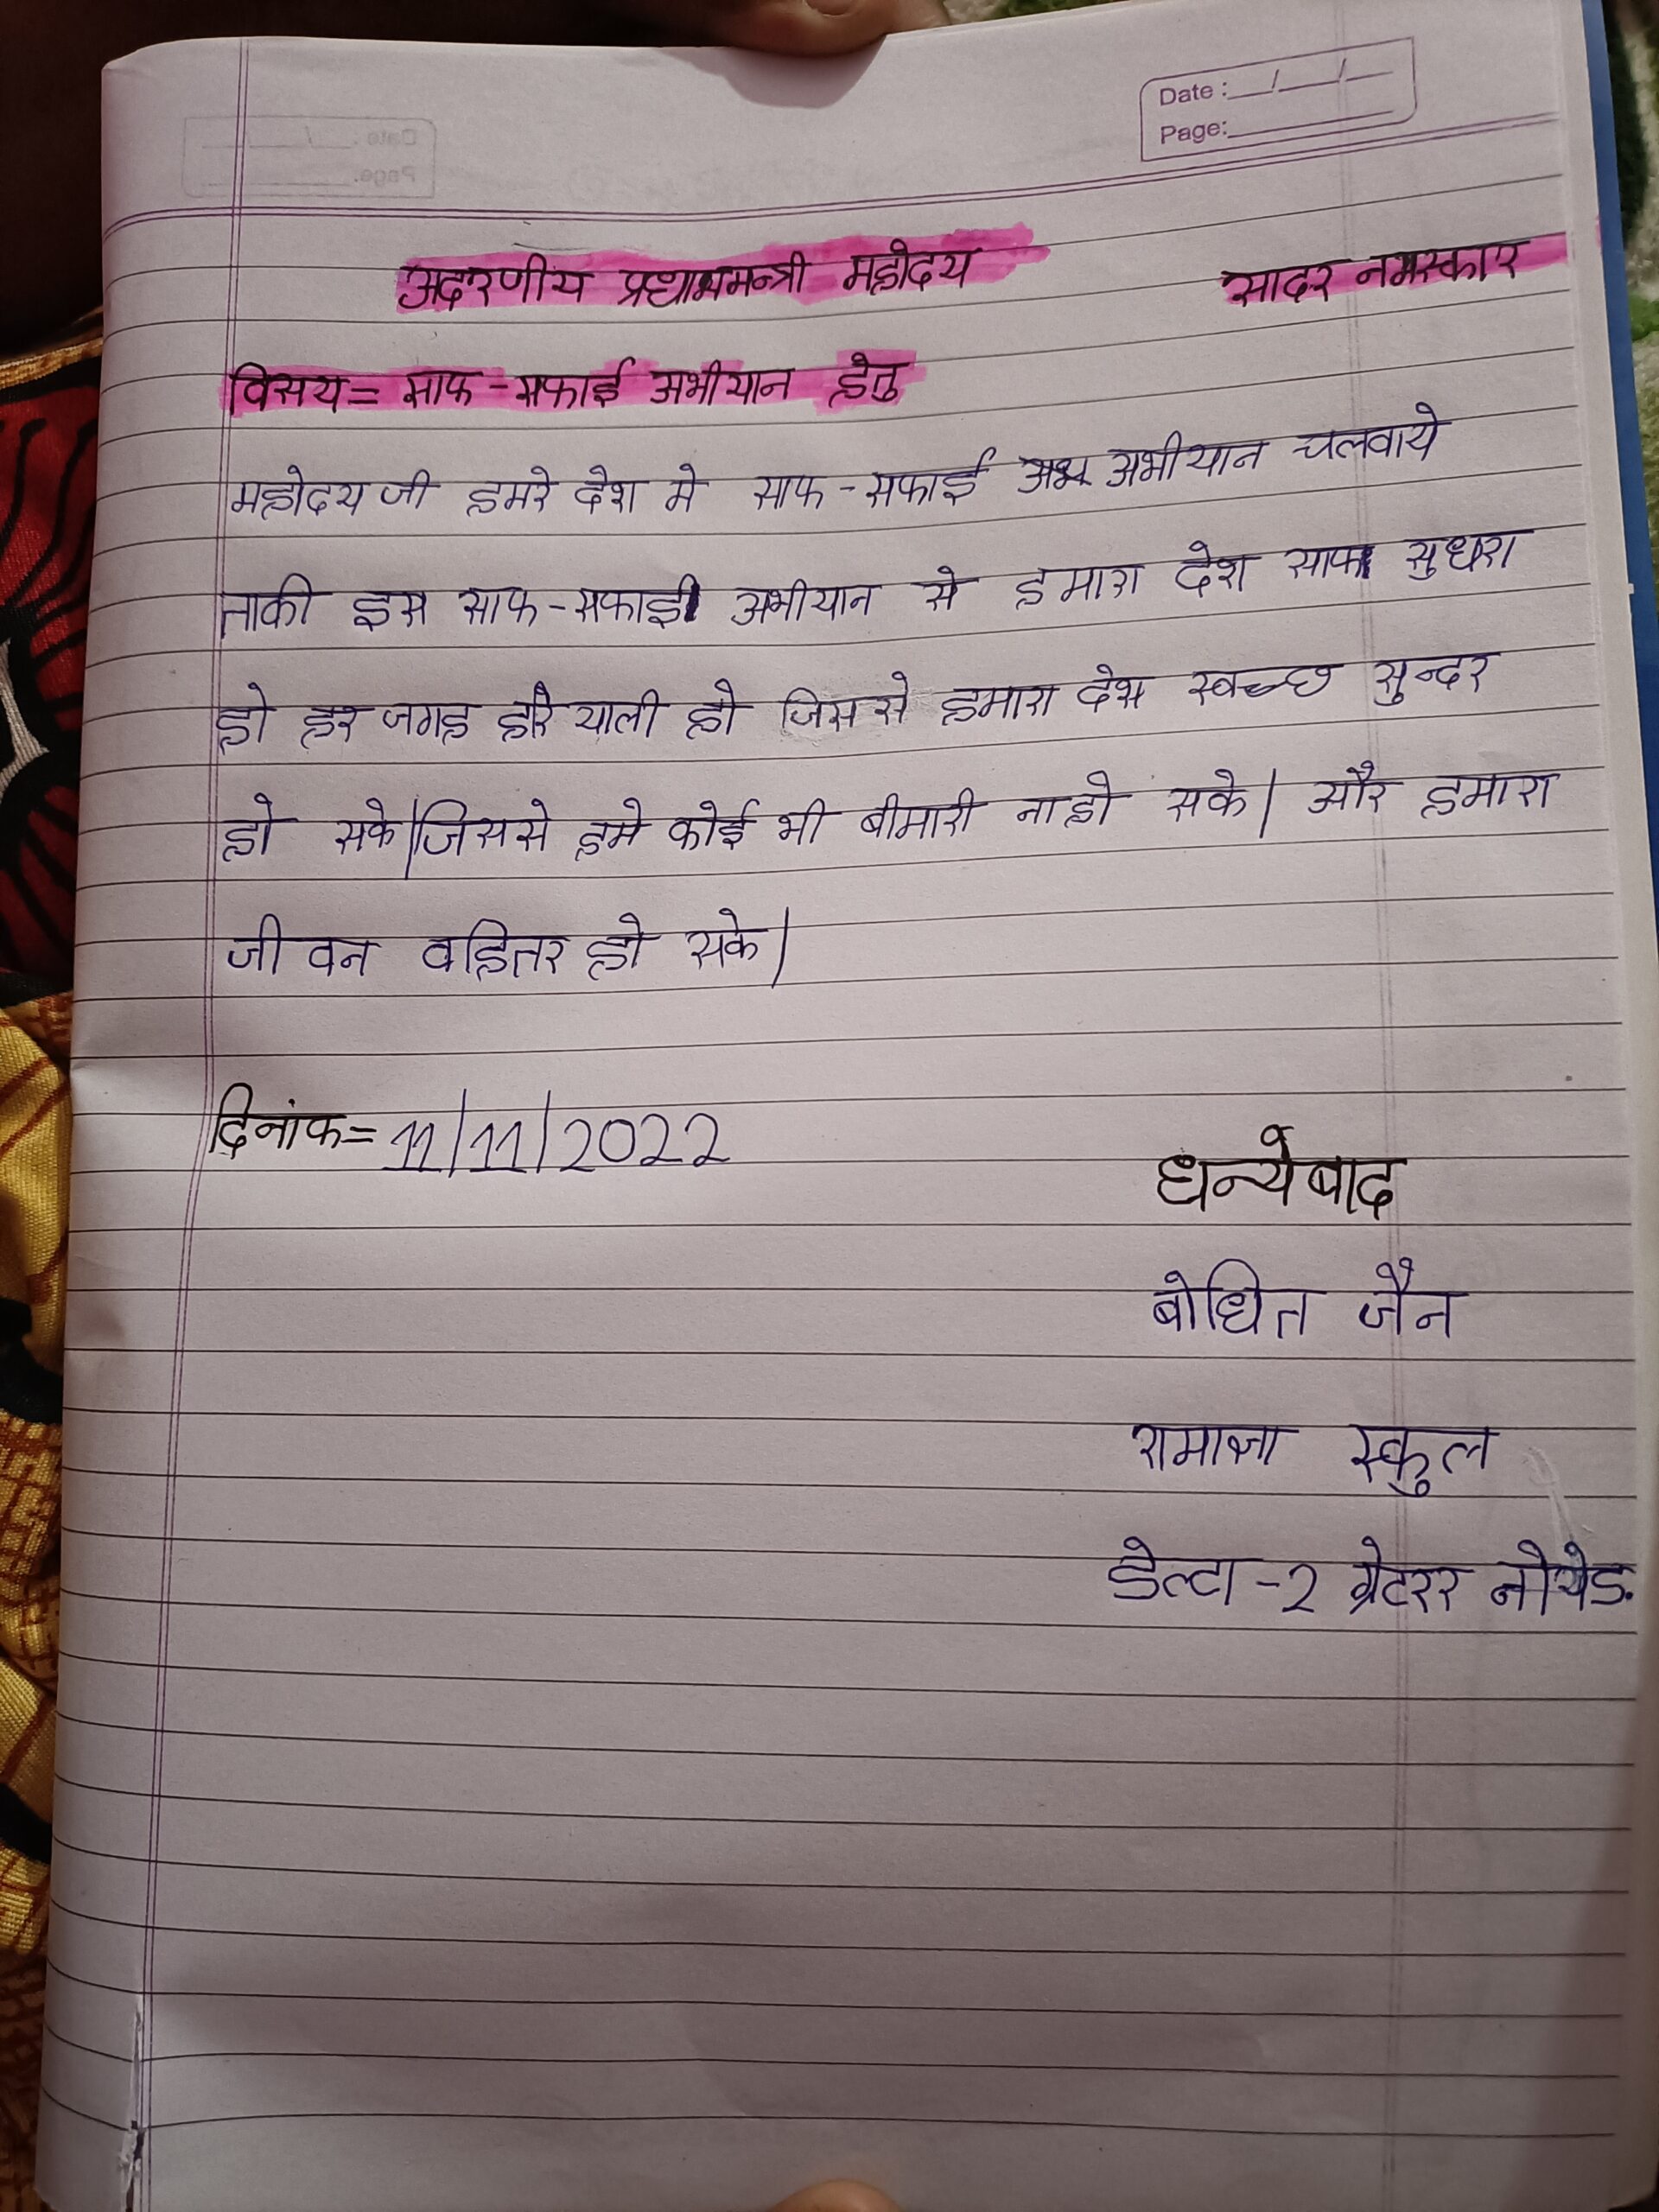 Date : __/__/__
Page:
अदरणीय प्रधानमन्त्री महोदय सादर नमस्कार
विसय= साफ-सफाई अभीयान हेतु
महोदय जी हमरे देश मे साफ-सफाई अभीयान चलवाये
ताकी इस साफ-सफाई अभीयान से हमारा देश साफ सुधरा
हो हर जगह हरियाली हो जिससे हमारा देश स्वच्छ सुन्दर
हो सके|जिससे हमे कोई भी बीमारी ना हो सके| और हमारा
जीवन वहितर हो सके|
दिनांक= 11/11/2022
धन्येबाद
बोधित जैन
स्कुल
डेल्टा-2 ग्रेटरर नोयेड